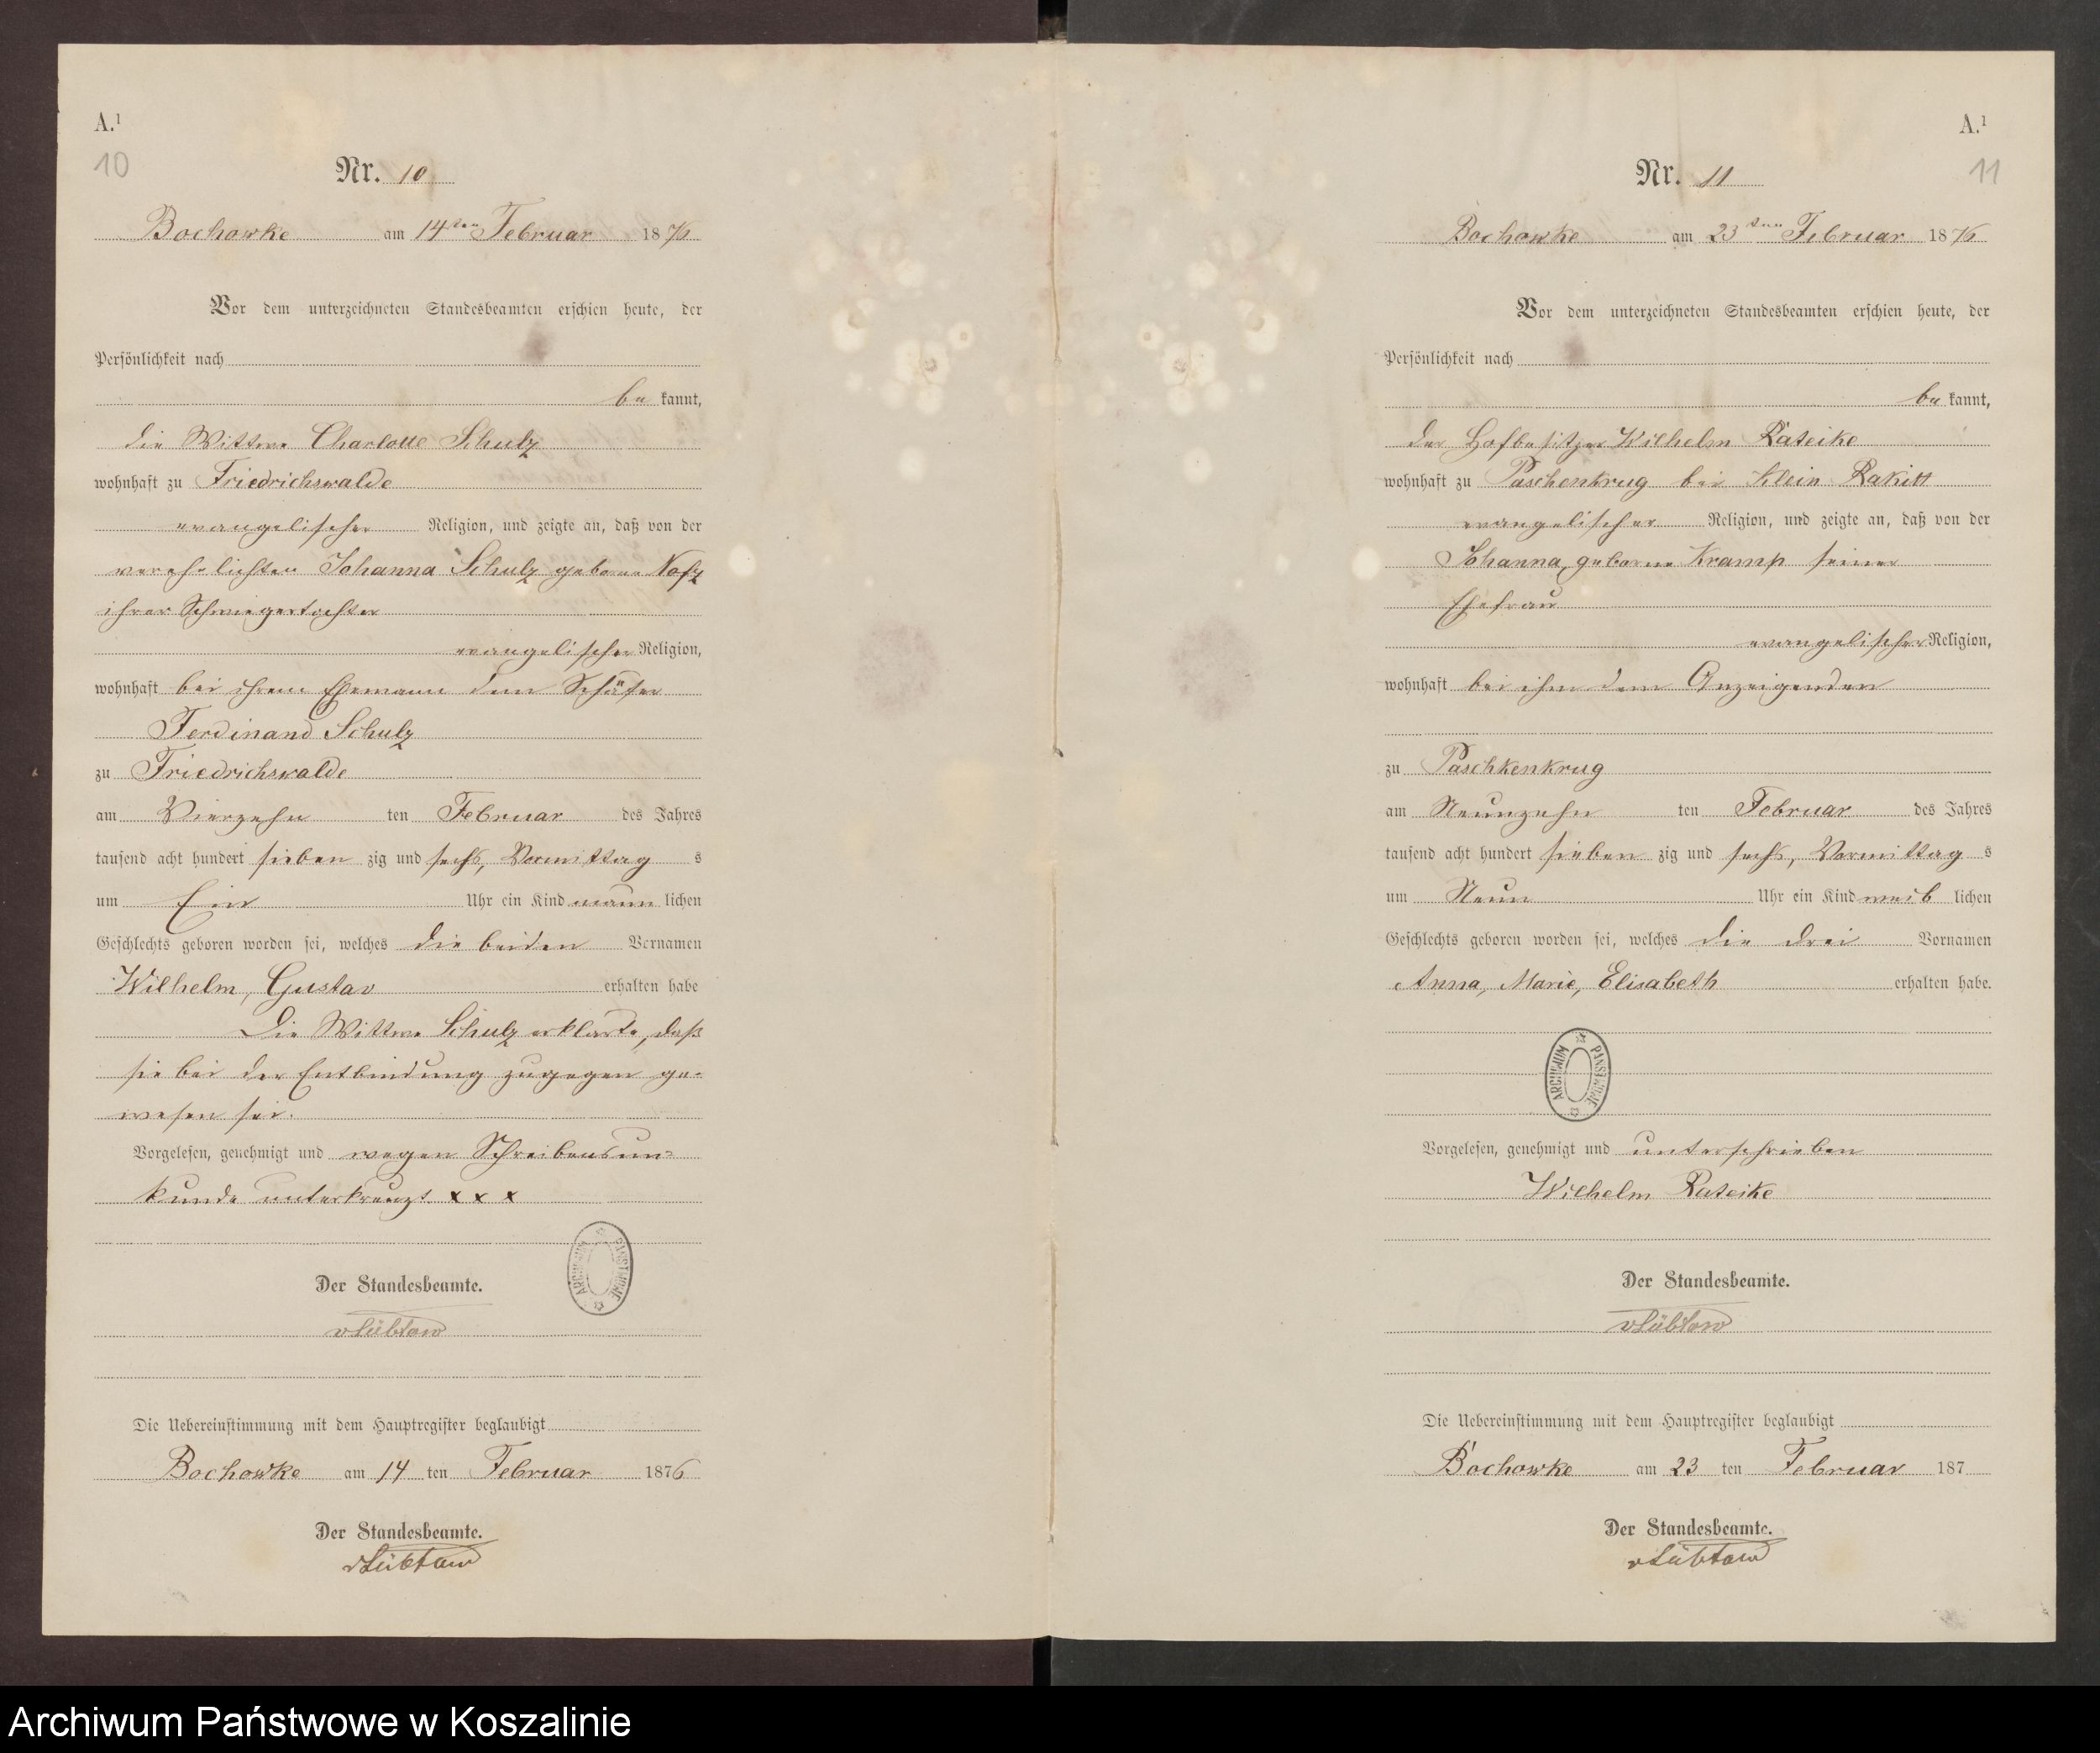 A.¹
10
Nr. 10
Bochowke am 14ten Februar 1876
Vor dem unterzeichneten Standesbeamten erschien heute, der
Persönlichkeit nach
be kannt,
die Wittwe Charlotte Schulz
wohnhaft zu Friedrichswalde
evangelischer Religion, und zeigte an, daß von der
verehelichten Johanna Schulz geborne
ihrer Schwiegertochter
evangelischer Religion,
wohnhaft bei ihrem Ehemann dem Schäfer
Ferdinand Schulz
zu Friedrichswalde
am Vierzehn ten Februar des Jahres
tausend acht hundert sieben zig und sechs, Vormittag s
um Ein Uhr ein Kind männ lichen
Geschlechts geboren worden sei, welches die beiden Vornamen
Wilhelm, Gustav erhalten habe
Die Wittwe Schulz erklärte, daß
sie bei der Entbindung zugegen ge-
wesen sei.
Vorgelesen, genehmigt und wegen Schreibensun=
kunde unterkreuzt x x x
ARCHIWUM PAŃSTWOWE
Der Standesbeamte.
vLübtow
Die Uebereinstimmung mit dem Hauptregister beglaubigt
Bochowke am 14 ten Februar 1876
Der Standesbeamte.
vLübtow
A.¹
11
Nr. 11
Bochowke am 23ten Februar 1876
Vor dem unterzeichneten Standesbeamten erschien heute, der
Persönlichkeit nach
be kannt,
der Hofbesitzer Wilhelm Rateike
wohnhaft zu Paschenkrug bei Klein Rakitt
evangelischer Religion, und zeigte an, daß von der
Johanna, geborne Kramp seiner
Ehefrau
evangelischer Religion,
wohnhaft bei ihm dem Anzeigenden
zu Paschkenkrug
am Neunzehn ten Februar des Jahres
tausend acht hundert sieben zig und sechs, Vormittag s
um Neun Uhr ein Kind weib lichen
Geschlechts geboren worden sei, welches die drei Vornamen
Anna, Marie, Elisabeth erhalten habe.
ARCHIWUM PAŃSTWOWE
Vorgelesen, genehmigt und unterschrieben
Wilhelm Rateike
Der Standesbeamte.
vLübtow
Die Uebereinstimmung mit dem Hauptregister beglaubigt
Bochowke am 23 ten Februar 187
Der Standesbeamte.
vLübtow
Archiwum Państwowe w Koszalinie